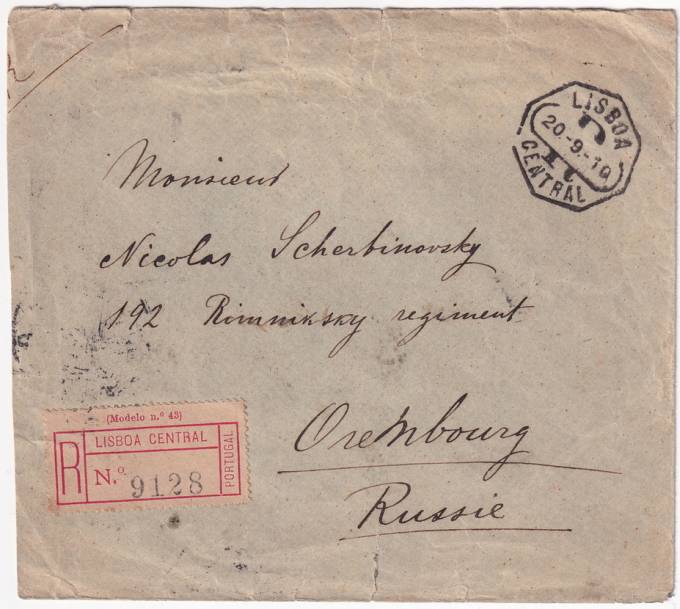 LISBOA
20.-9.-10
CENTRAL
Monsieur
Nicolas Scherbinovsky
192 Rimniksky regiment
Orenbourg
Russie
(Modelo n.º 43)
R LISBOA CENTRAL
N.º 9128
PORTUGAL